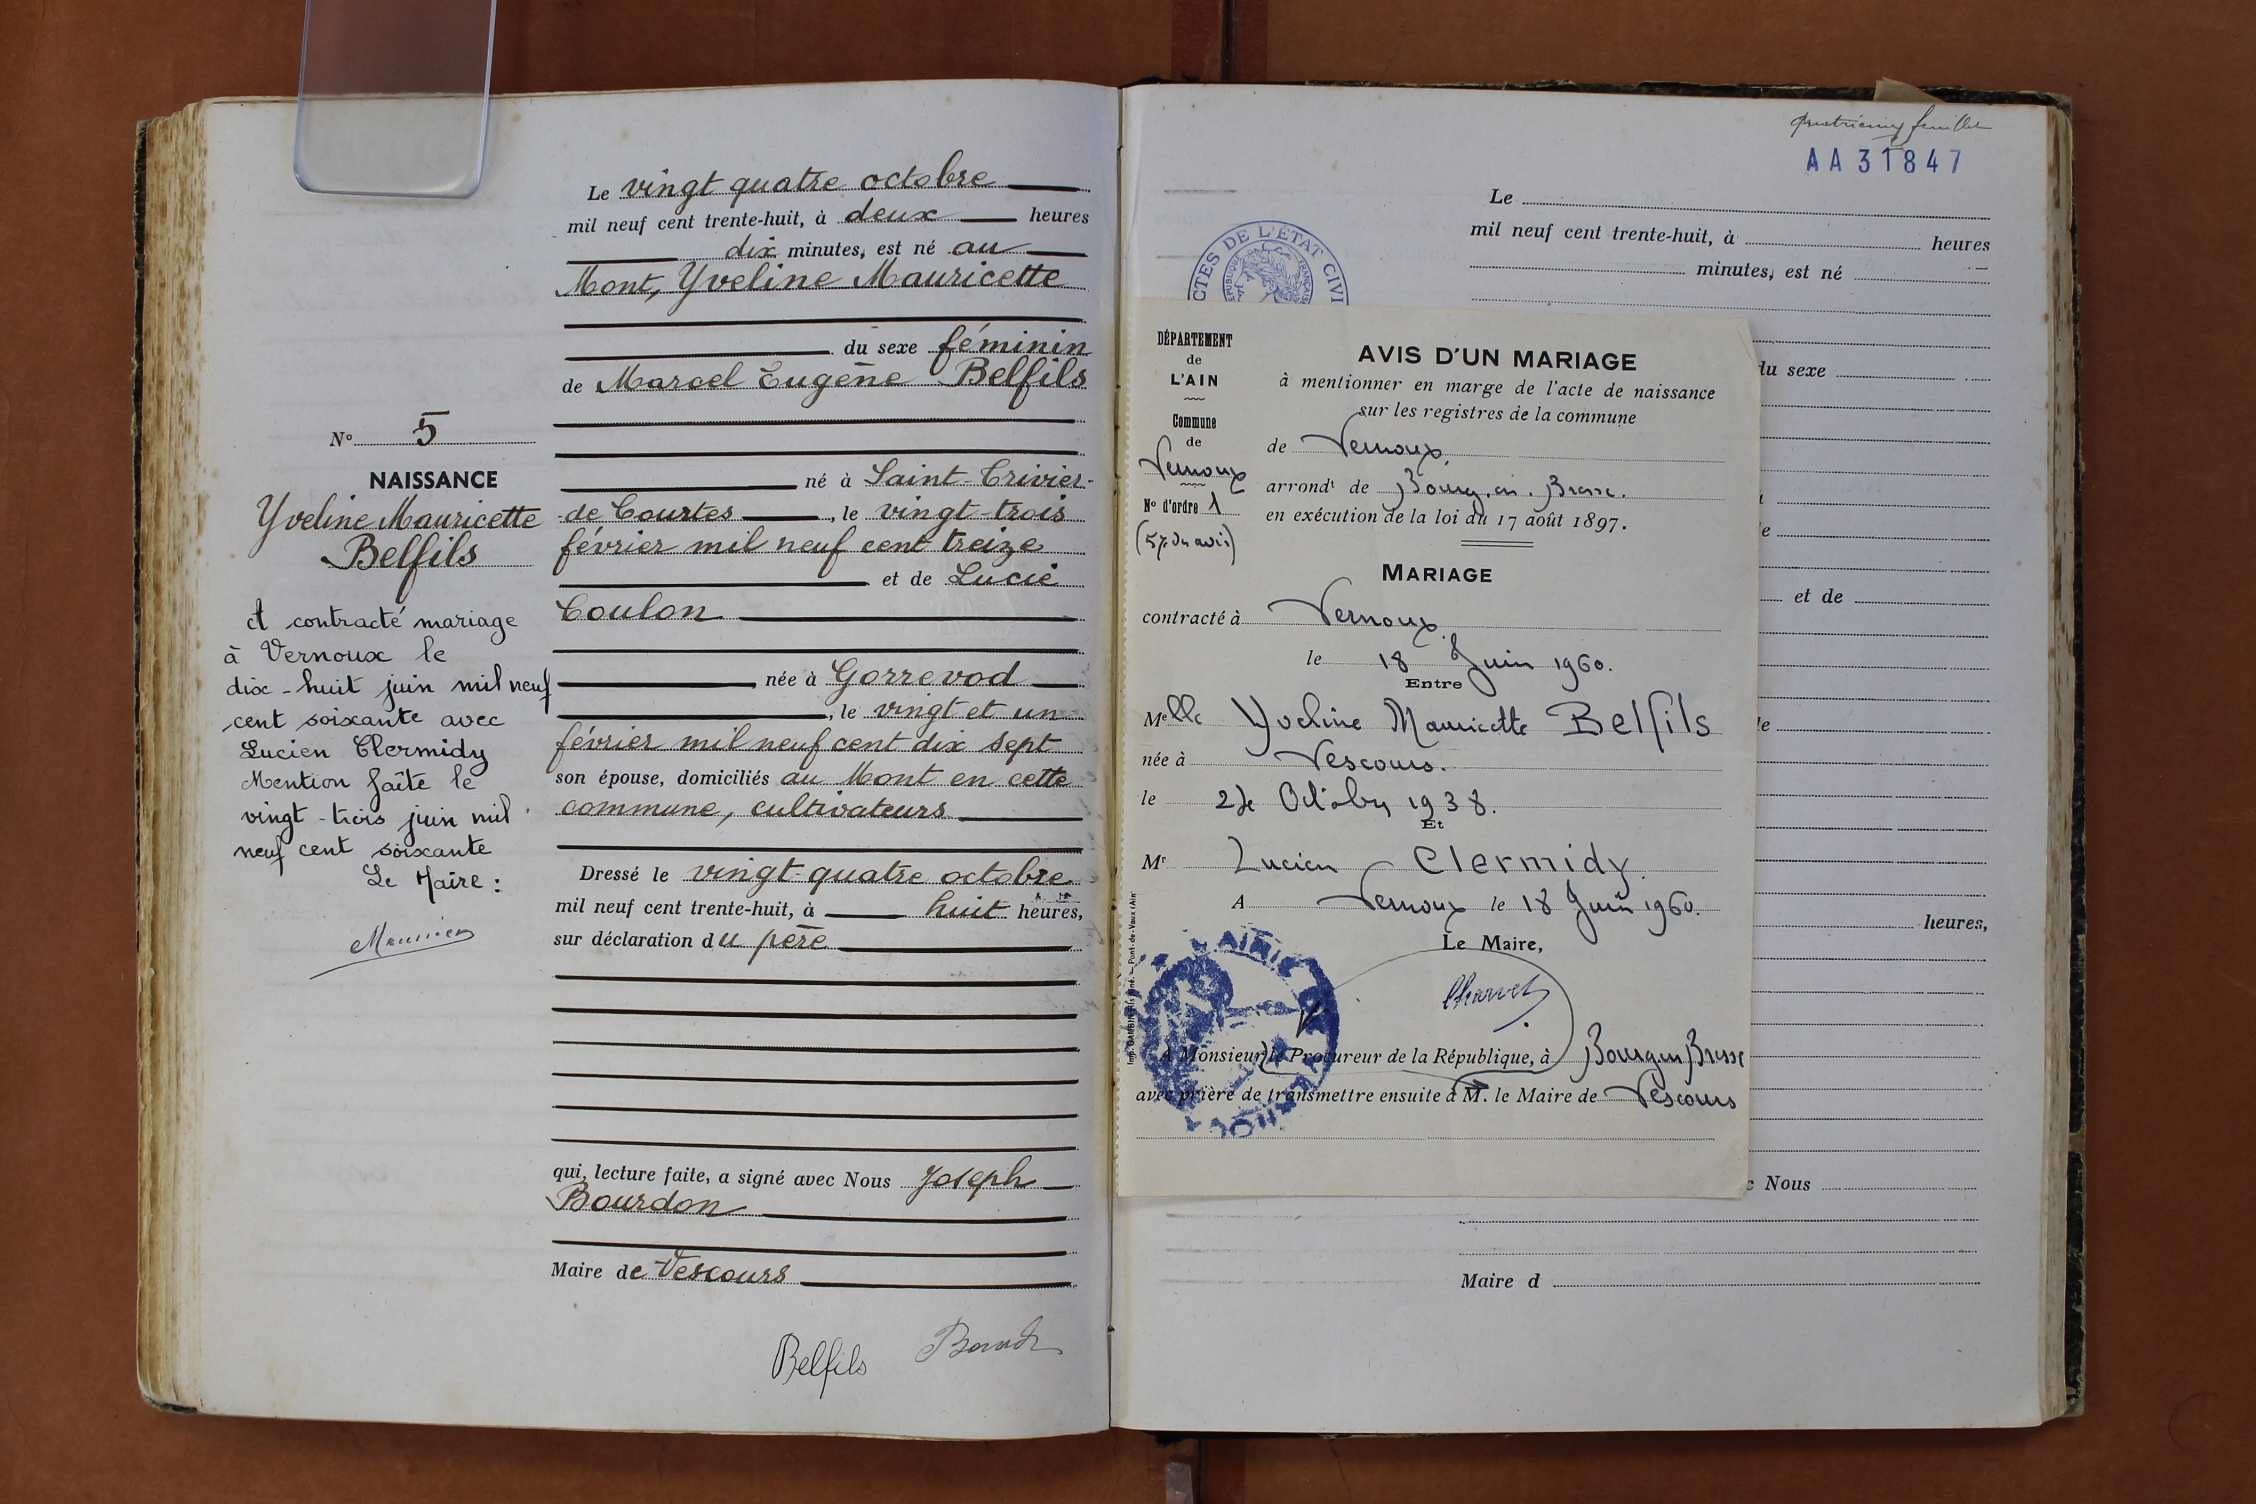 N° 5
NAISSANCE
Yveline Mauricette
Belfils
A contracté mariage
à Vernoux le
dix-huit juin mil neuf
cent soixante avec
Lucien Clermidy
Mention faîte le
vingt-trois juin mil
neuf cent soixante
Le Maire :
Le vingt quatre octobre
mil neuf cent trente-huit, à deux heures
dix minutes, est né au
Mont, Yveline Mauricette
du sexe féminin
de Marcel Eugène Belfils
né à Saint-Trivier-
de Courtes, le vingt-trois
février mil neuf cent treize
et de Lucie
Coulon
née à Gorrevod
, le vingt et un
février mil neuf cent dix sept
son épouse, domiciliés au Mont en cette
commune, cultivateurs
Dressé le vingt-quatre octobre
mil neuf cent trente-huit, à huit heures,
sur déclaration du père
qui, lecture faite, a signé avec Nous Joseph
Bourdon
Maire de Vescours
Belfils
feuillet
AA31847
Le
mil neuf cent trente-huit, à heures
minutes, est né
CTES DE L'ÉTAT CIVI
du sexe
et de
heures,
Nous
Maire d
DÉPARTEMENT
de
L'AIN
Commune
de
Vernoux
N° d'ordre 1
AVIS D'UN MARIAGE
à mentionner en marge de l'acte de naissance
sur les registres de la commune
de Vernoux
arrondt de Bourg.en.Bresse.
en exécution de la loi du 17 août 1897.
MARIAGE
contracté à Vernoux
le 18 Juin 1960.
Entre
Melle Yveline Mauricette Belfils
née à Vescours.
le 24 Octobre 1938.
Et
Mr Lucien Clermidy.
A Vernoux le 18 Juin 1960.
Le Maire,
A Monsieur le Procureur de la République, à Bourg en Bresse
avec prière de transmettre ensuite à M. le Maire de Vescours